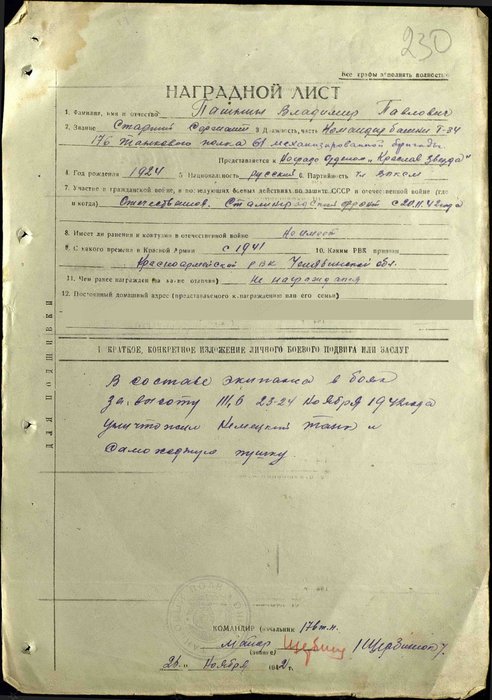 230
Все графы заполнять полностью
НАГРАДНОЙ ЛИСТ
1. Фамилия, имя и отчество Владимир Павлович
2. Звание Старший Сержант 3. Должность, часть Командир башни Т-34
176 танкового полка 61 механизированной бригады.
Представляется к Ордену „Красная Звезда"
4. Год рождения 1924 5. Национальность русский 6. Партийность чл. ВЛКСМ
7. Участие в гражданской войне, и последующих боевых действиях по защите СССР и отечественной войне (где
и когда) Отечественной. Сталинградский фронт с 20.11.42 года
8. Имеет ли ранения и контузии в отечественной войне Не имеет
9. С какого времени в Красной Армии с 1941 10. Каким РВК призван
Красноармейской РВК Челябинской обл.
11. Чем ранее награжден (за какие отличия) Не награждался
12. Постоянный домашний адрес (представляемого к награждению или его семьи)
ДЛЯ ПОДШИВКИ
I КРАТКОЕ, КОНКРЕТНОЕ ИЗЛОЖЕНИЕ ЛИЧНОГО БОЕВОГО ПОДВИГА ИЛИ ЗАСЛУГ
В составе экипажа в боях
за высоту 111,0 23-24 ноября 1942 года
уничтожил немецкий танк и
самоходную пушку.
КОМАНДИР (начальник) 176 т.п.
майор
(звание)
26 ноября 1942 г.